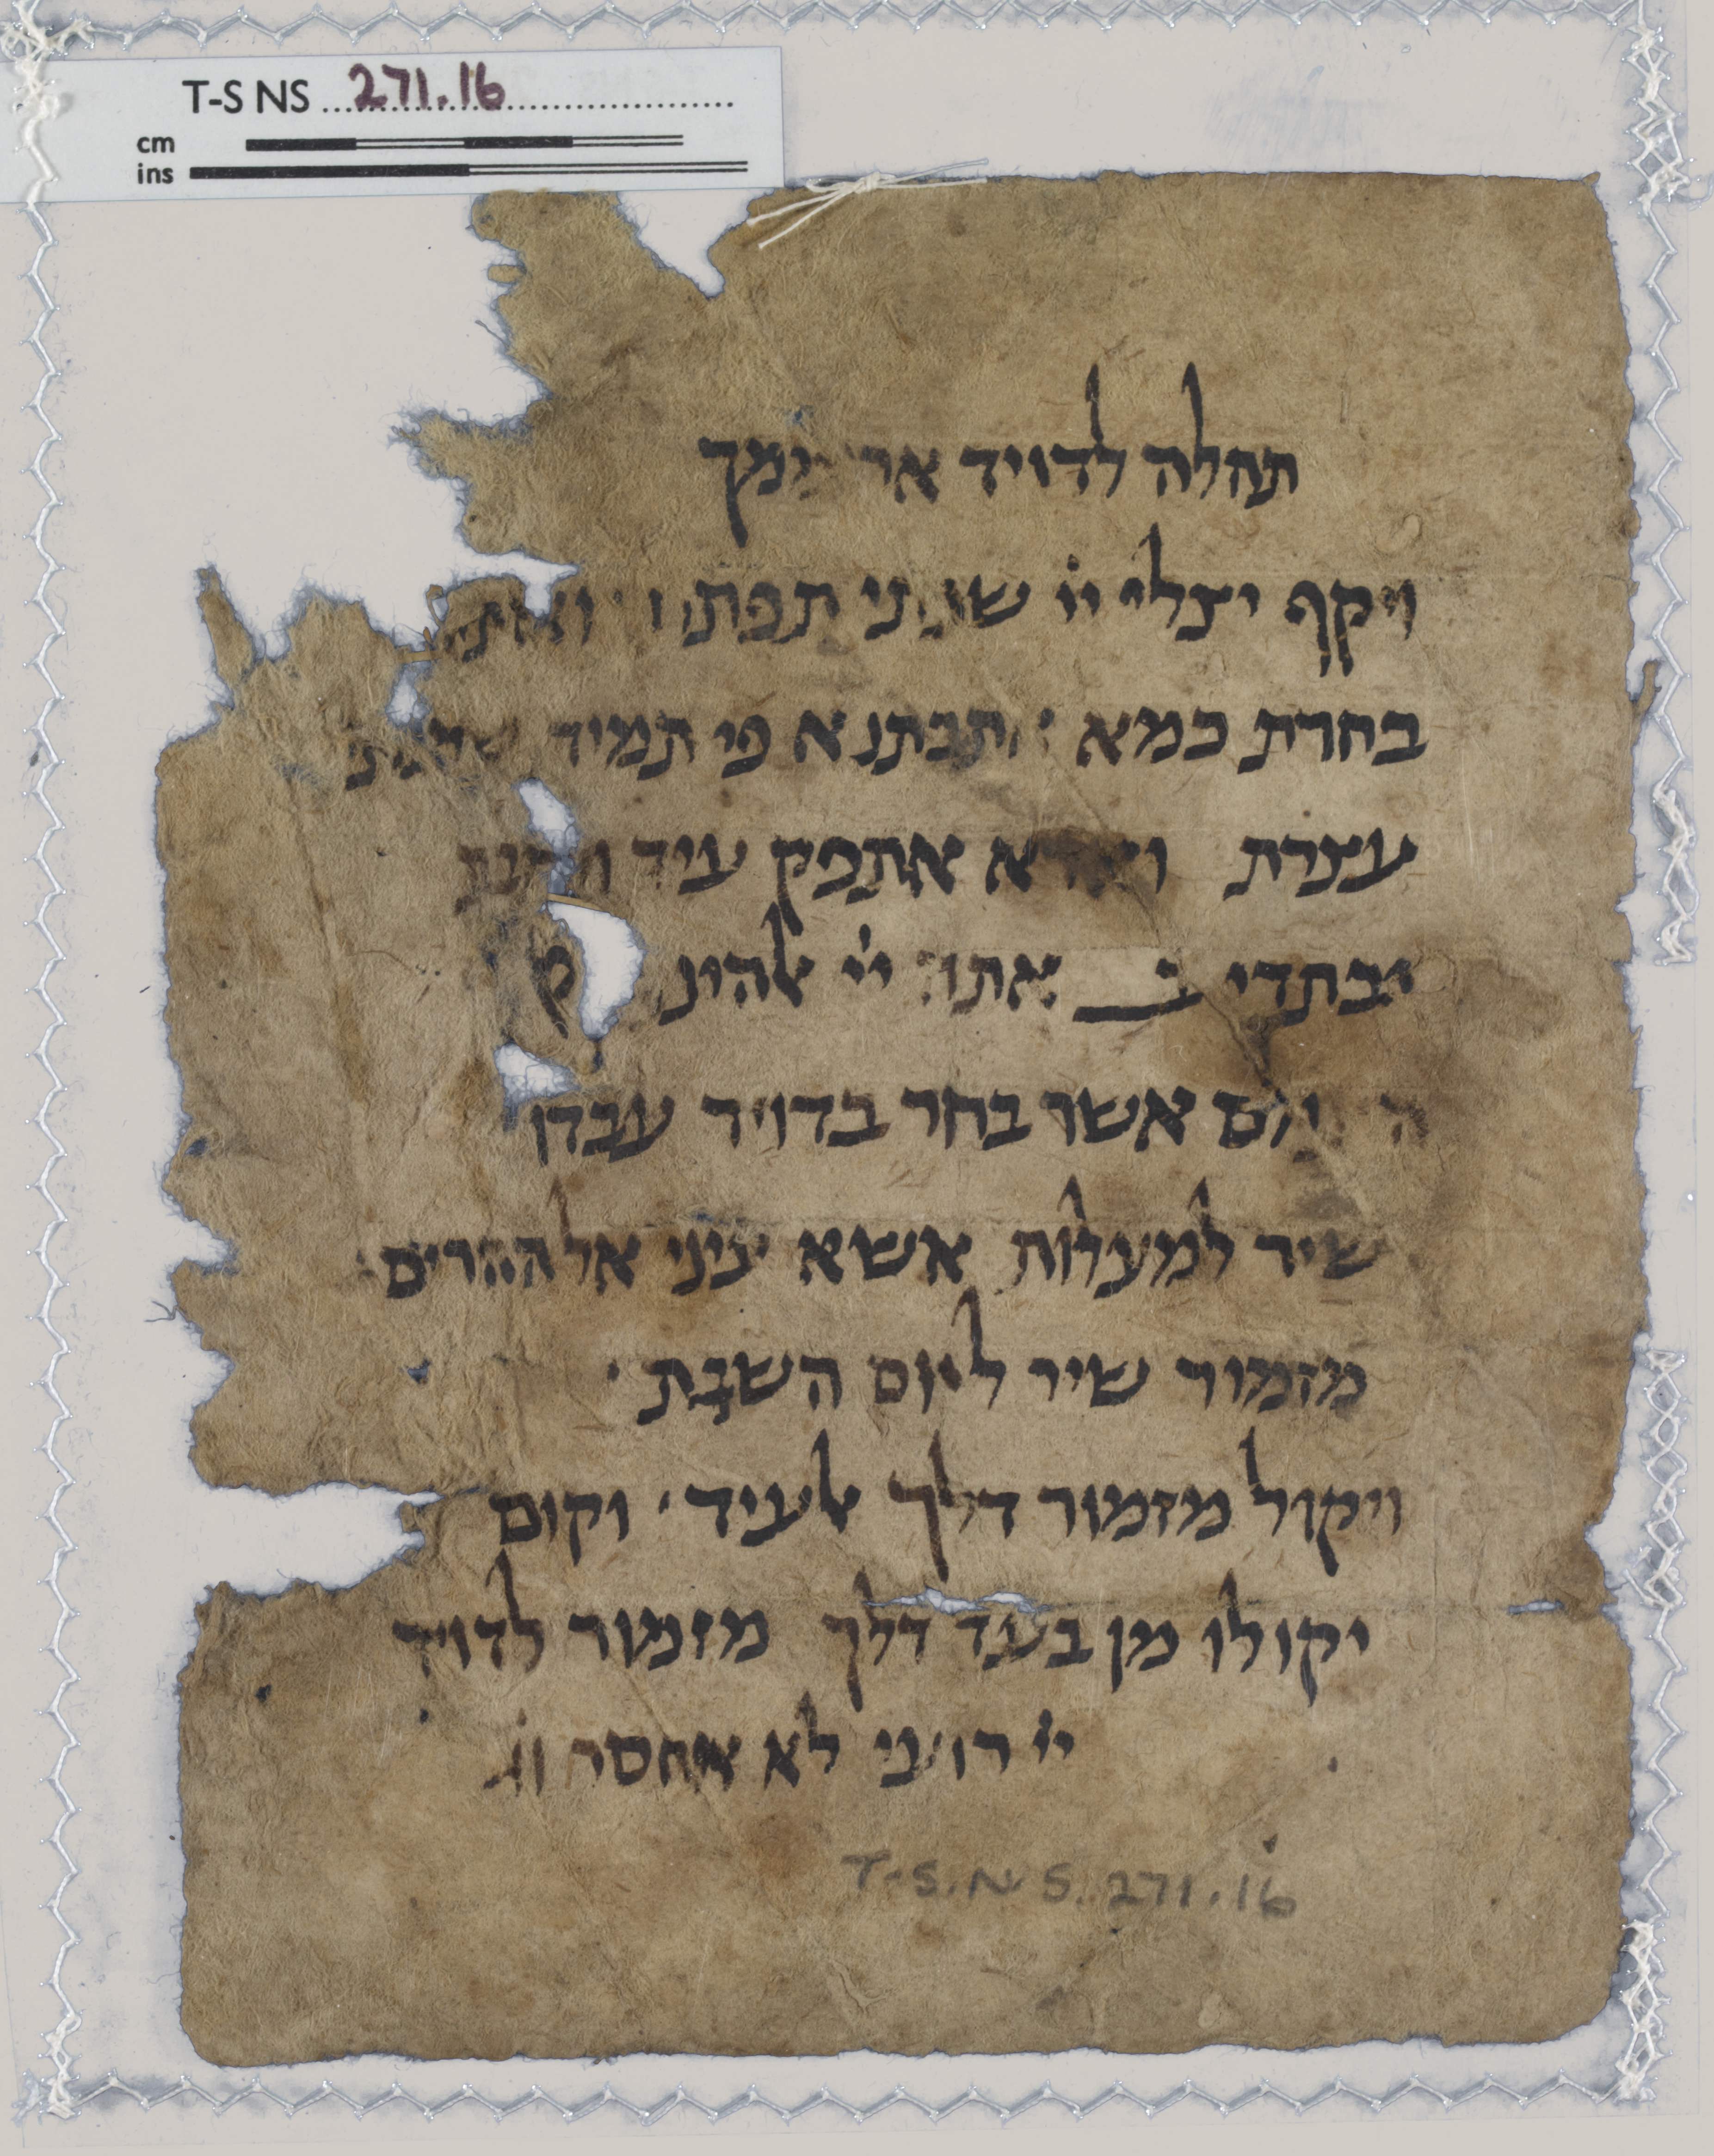 T-S NS 271.16
cm
ins
תהלה לדויד
ויקף יצלי ייֹ תפתח
בחרת כמא פי תמיד
עצרת אתפק עיד
ובתדי ב אתה ייֹ
אשר בחר בדויד עבדו
שיר למעלות אשא עיני אל ההרים
מזמור שיר ליום השבת
ויקול מזמור דלך אלעיד וקום
יקולו מן בעד דלך מזמור לדויד
ייֹ רועי לא אחסר וג
T-S.N.S. 271.16